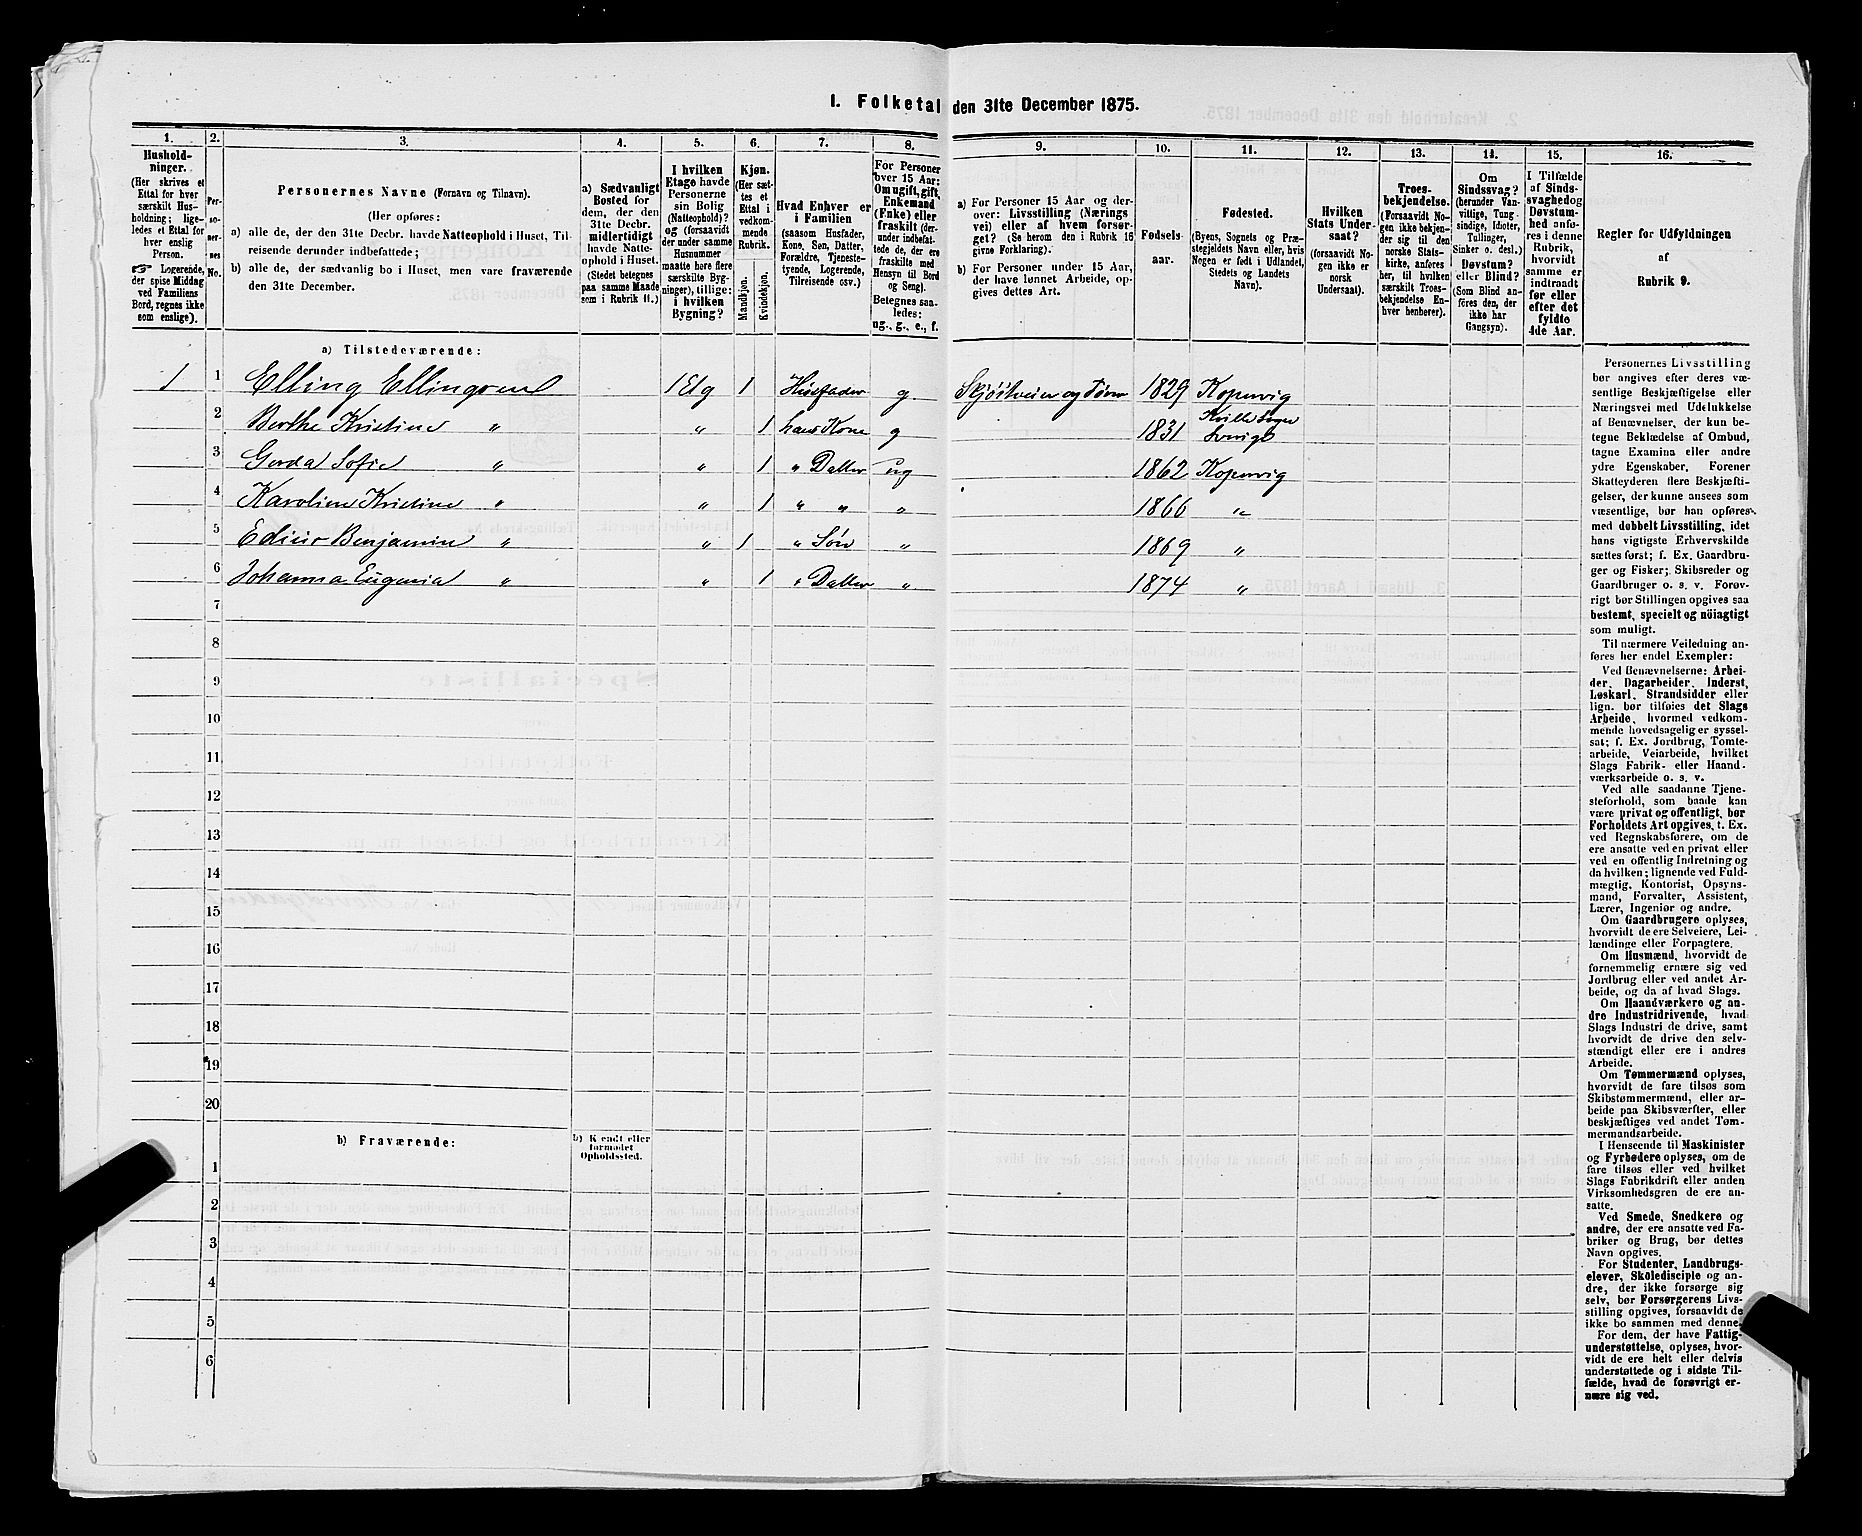 I. Folketal den 31te December 1875.
1. 2. 3. 4. 5. 6. 7. 8. 9. 10. 11. 12. 13. 14. 15. 16.
Hushold-
ninger.
(Her skrives et
Ettal for hver
særskilt Hus-
holdning; lige-
ledes et Ettal for
hver enslig
Person.
☞ Logerende,
der spise Middag
ved Familiens
Bord, regnes ikke
som enslige).
Per-
so-
ner-
nes
No.
Personernes Navne (Fornavn og Tilnavn).
(Her opføres:
a) alle de, der den 31te Decbr. havde Natteophold i Huset, Til-
reisende derunder indbefattede;
b) alle de, der sædvanlig bo i Huset, men vare fraværende
den 31te December.
a) Sædvanligt
Bosted for
dem, der den
31te Decbr.
midlertidigt
havde Natte-
ophold i Huset.
(Stedet betegnes
paa samme Maade
som i Rubrik 11.)
I hvilken
Etage havde
Personerne
sin Bolig
(Natteophold)?
og (forsaavidt
der under samme
Husnummer
maatte høre flere
særskilte Byg-
ninger), tillige:
i hvilken
Bygning?
Kjøn.
(Her sæt-
tes et
Ettal i
vedkom-
mende
Rubrik.
Mandkjøn.
Kvindekjøn.
Hvad Enhver er
i Familien
(saasom Husfader,
Kone, Søn, Datter,
Forældre, Tjeneste-
tyende, Logerende,
Tilreisende osv.)
For Personer
over 15 Aar:
Om ugift, gift,
Enkemand
(Enke) eller
fraskilt (der-
under indbefat-
tede de, der ere
fraskilte med
Hensyn til Bord
og Seng).
Betegnes saa-
ledes:
ug., g., e., f.
a) For Personer 15 Aar og der-
over: Livsstilling (Nærings
vei) eller af hvem forsør-
get? (Se herom den i Rubrik 16
givne Forklaring).
b) For Personer under 15 Aar,
der have lønnet Arbeide, op-
gives dettes Art.
Fødsels-
aar.
Fødested.
(Byens, Sognets og Præ-
stegjeldets Navn eller, hvis
Nogen er født i Udlandet,
Stedets og Landets
Navn).
Hvilken
Stats Under-
saat?
(forsaavidt No-
gen ikke er
norsk
Undersaat).
Troes-
bekjendelse.
(Forsaavidt No-
gen ikke bekjen-
der sig til den
norske Stats-
kirke, anføres
her, til hvilken
særskilt Troes-
bekjendelse En-
hver henhører).
Om
Sindssvag?
(herunder Van-
vittige, Tung-
sindige, Idioter,
Tullinger,
Sinker o. desl.)
Døvstum?
eller Blind?
(Som Blind an-
føres den, der
ikke har
Gangsyn).
I Tilfælde
af Sinds-
svaghed og
Døvstum-
hed anfø-
res i denne
Rubrik,
hvorvidt
samme er
indtraadt
før eller
efter det
fyldte
4de Aar.
Regler for Udfyldningen
af
Rubrik 9.
a) Tilstedeværende:
1 1 Elling Ellingsen 1 Etg 1 Husfader g. 1829 Kopervig
2 Berthe Kristine " " 1 hans Kone g 1831 Sverige
3 Gerda Sofie " " 1 " Datter ug 1862 Kopervig
4 Karoline Kristine " " 1 " " " 1866 "
5 Benjamin " " 1 " Søn " 1869 "
6 Johanna Eugenia " " 1 " Datter " 1874 "
7
8
9
10
11
12
13
14
15
16
17
18
19
20
b) Fraværende:
b) Kjendt eller
formodet
Opholdssted.
1
2
3
4
5
6
Personernes Livsstilling
bør angives efter deres væ-
sentlige Beskjæftigelse eller
Næringsvei med Udelukkelse
af Benævnelser, der kun be-
tegne Beklædelse af Ombud,
tagne Examina eller andre
ydre Egenskaber. Forener
Skatteyderen flere Beskjæfti-
gelser, der kunne ansees som
væsentlige, bør han opføres
med dobbelt Livsstilling, idet
hans vigtigste Erhvervskilde
sættes først; f. Ex. Gaardbru-
ger og Fisker; Skibsreder og
Gaardbruger o. s. v. Forøv-
rigt bør Stillingen opgives saa
bestemt, specielt og nöiagtigt
som muligt.
Til nærmere Veiledning an-
føres her endel Exempler:
Ved Benævnelserne: Arbei-
der, Dagarbeider, Inderst,
Løskarl, Strandsidder eller
lign. bør tilføies det Slags
Arbeide, hvormed vedkom-
mende hovedsagelig er syssel-
sat; f. Ex. Jordbrug, Tomte-
arbeide, Veiarbeide, hvilket
Slags Fabrik- eller Haand-
værksarbeide o. s. v.
Ved alle saadanne Tjene-
steforhold, som baade kan
være privat og offentligt, bør
Forholdets Art opgives, t. Ex.
ved Regnskabsførere, om de
ere ansatte ved en privat eller
ved en offentlig Indretning og
da hvilken; lignende ved Fuld-
mægtig, Kontorist, Opsyns-
mand, Forvalter, Assistent,
Lærer, Ingeniør og andre.
Om Gaardbrugere oplyses,
hvorvidt de ere Selveiere, Lei-
lændinge eller Forpagtere.
Om Husmænd, hvorvidt de
fornemmelig ernære sig ved
Jordbrug eller ved andet Ar-
beide, og da af hvad Slags.
Om Haandværkere og an-
dre Industridrivende, hvad
Slags Industri de drive, samt
hvorvidt de drive den selv-
stændigt eller ere i andres
Arbeide.
Om Tømmermænd oplyses,
hvorvidt de fare tilsøs som
Skibstømmermænd, eller ar-
beide paa Skibsværfter, eller
beskjæftiges ved andet Tøm-
mermandsarbeide.
I Henseende til Maskinister
og Fyrbødere oplyses, om de
fare tilsøs eller ved hvilket
Slags Fabrikdrift eller anden
Virksomhedsgren de ere an-
satte.
Ved Smede, Snedkere og
andre, der ere ansatte ved Fa-
briker og Brug, bør dettes
Navn opgives.
For Studenter, Landbrugs-
elever, Skoledisciple og an-
dre, der ikke forsørge sig
selv, bør Forsørgerens Livs-
stilling opgives, forsaavidt de
ikke bo sammen med denne.
For dem, der have Fattig-
understøttelse, oplyses, hvor-
vidt de ere helt eller delvis
understøttede og i sidste Til-
fælde, hvad de forøvrigt er-
nære sig ved.